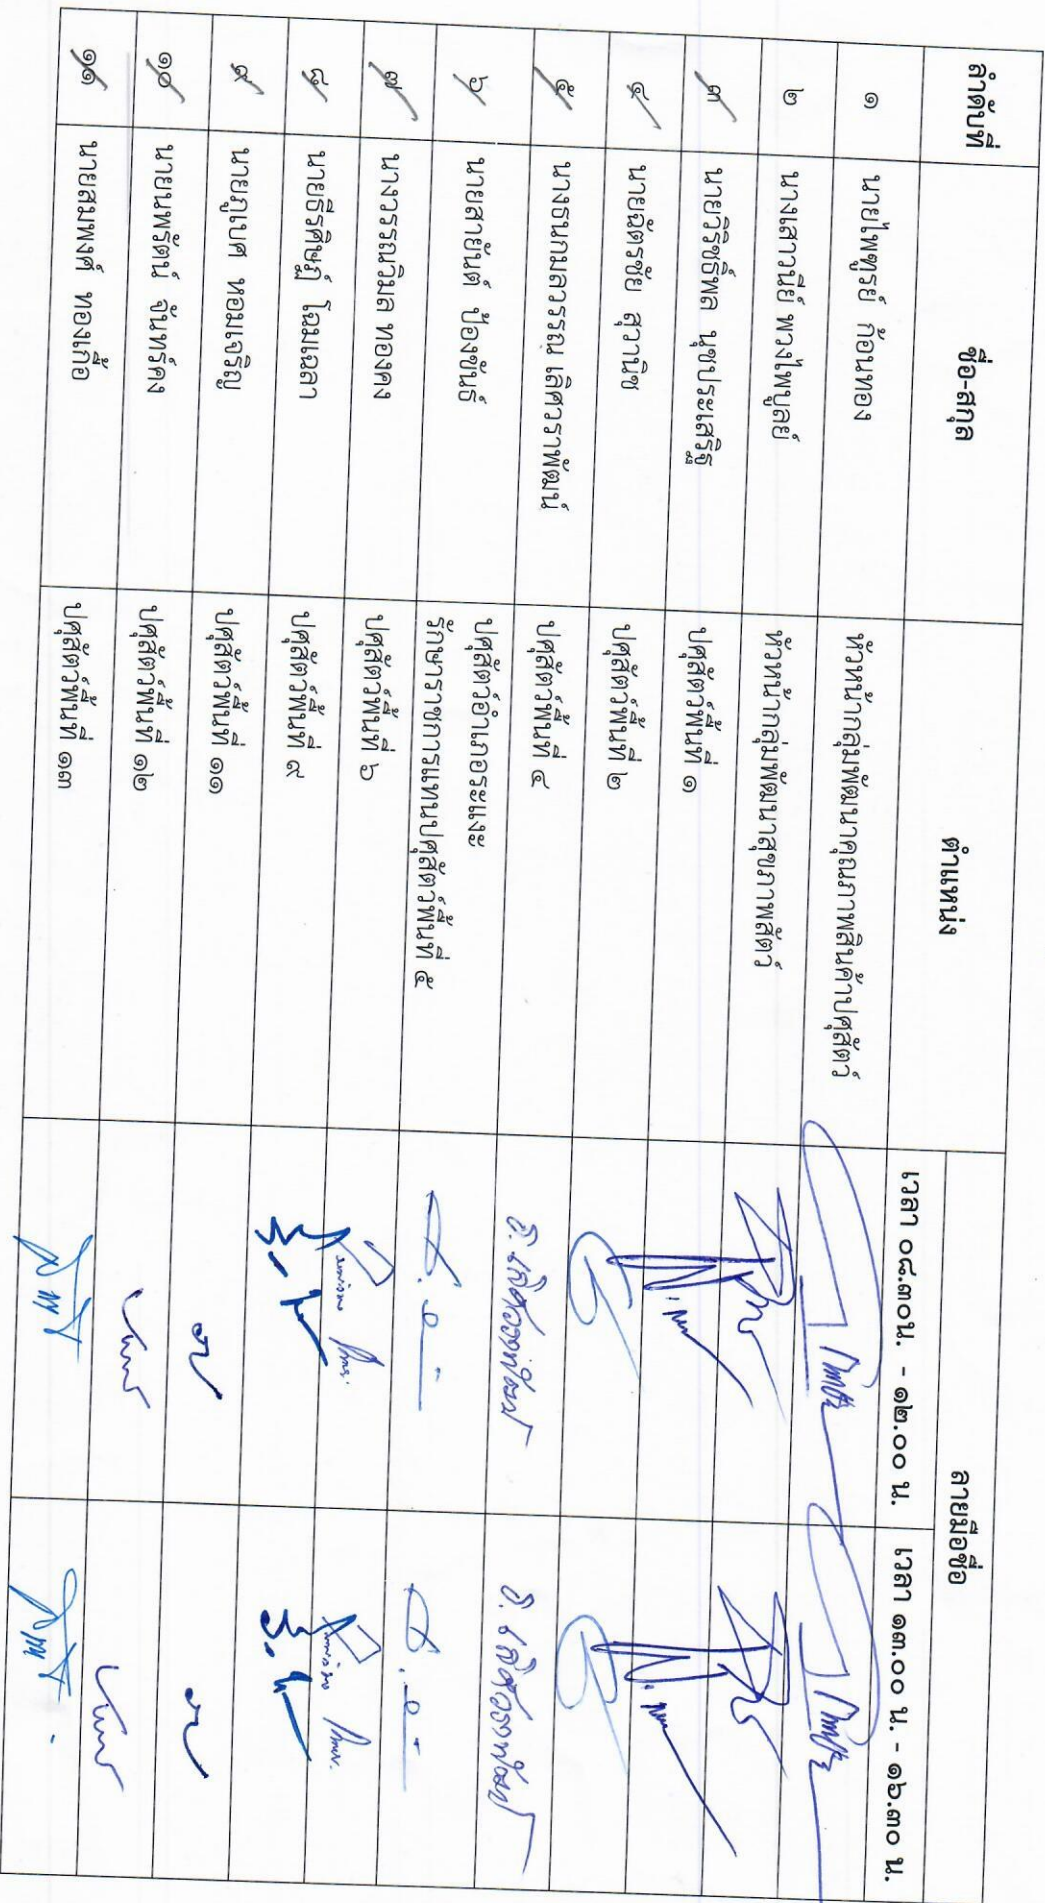 ลำดับที่ ชื่อ-สกุล ตำแหน่ง ลายมือชื่อ
เวลา ๐๘.๓๐น. - ๑๒.๐๐ น. เวลา ๑๓.๐๐ น. - ๑๖.๓๐ น.
๑ นายไพฑูรย์ ก้อนทอง หัวหน้ากลุ่มพัฒนาคุณภาพสินค้าปศุสัตว์
๒ นางเสาวนีย์ พวงไพบูลย์ หัวหน้ากลุ่มพัฒนาสุขภาพสัตว์
๓ นายวิริชธิ์พล นุชประเสริฐ ปศุสัตว์พื้นที่ ๑
๔ นายฉัตรชัย สุวานิช ปศุสัตว์พื้นที่ ๒
๕ นางธนกมลวรรณ เลิศวราพัฒน์ ปศุสัตว์พื้นที่ ๔ ธ. เลิศวราพัฒน์ ธ. เลิศวราพัฒน์
๖ นายสายันต์ ป้องขันธ์ ปศุสัตว์อำเภอระแงะ
รักษาราชการแทนปศุสัตว์พื้นที่ ๕
๗ นางวรรณวิมล ทองคง ปศุสัตว์พื้นที่ ๖
๘ นายธีรศิษฏ์ โฉมเฉลา ปศุสัตว์พื้นที่ ๙
๙ นายภูเบศ หอมเจริญ ปศุสัตว์พื้นที่ ๑๑
๑๐ นายนพรัตน์ จันทร์คง ปศุสัตว์พื้นที่ ๑๒
๑๑ นายสมพงศ์ ทองเกื้อ ปศุสัตว์พื้นที่ ๑๓